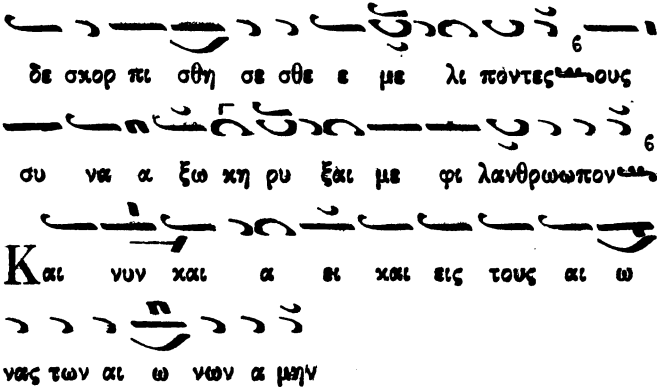 δε σκορ πι σθη σε σθε ε με λι πόντες τους
συ να α ξω κη ρυ ξαι με φι λανθρωωπον
Και νυν και α ει και εις τους αι ω
νας των αι ω νων α μην